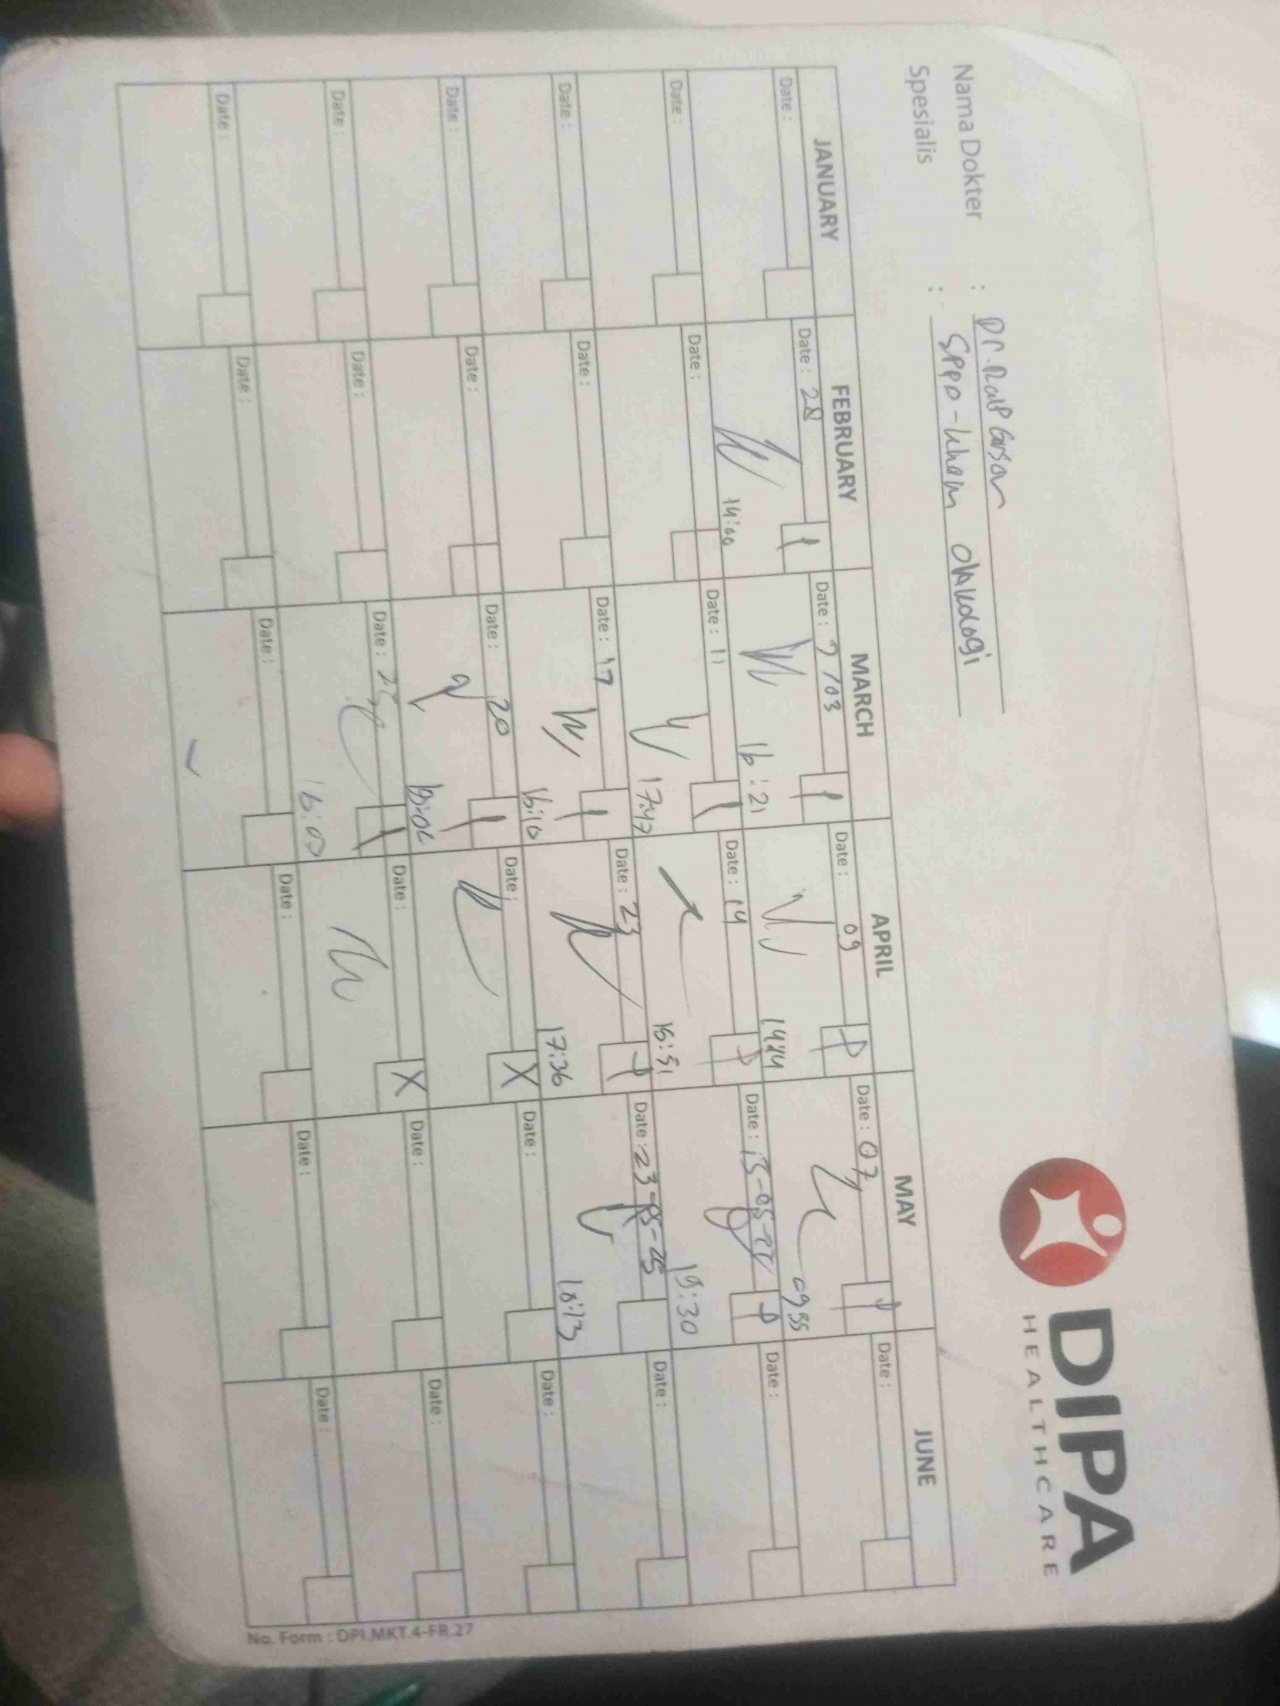 DIPA
HEALTHCARE
Nama Dokter : Dr. Ralp Girson
Spesialis : SPPD - Khom Onkologi
JANUARY FEBRUARY MARCH APRIL MAY JUNE
Date : Date : 28 Date : 7/03 Date : 09 Date : 07 Date :
14:00 16:21 14:14 0955
Date : Date : Date : 11 Date : 14 Date : 15-05-25 Date :
17:47 16:51 19:30
Date : Date : Date : 17 Date : 23 Date : 23-05-25 Date :
16:10 17:36 18:13
Date : Date : Date : 20 Date : X Date : Date :
Date : Date : Date : 25 Date : X Date : Date :
16:07
Date : Date : Date : Date : Date : Date :
No. Form : DPI.MKT.4-FR.27